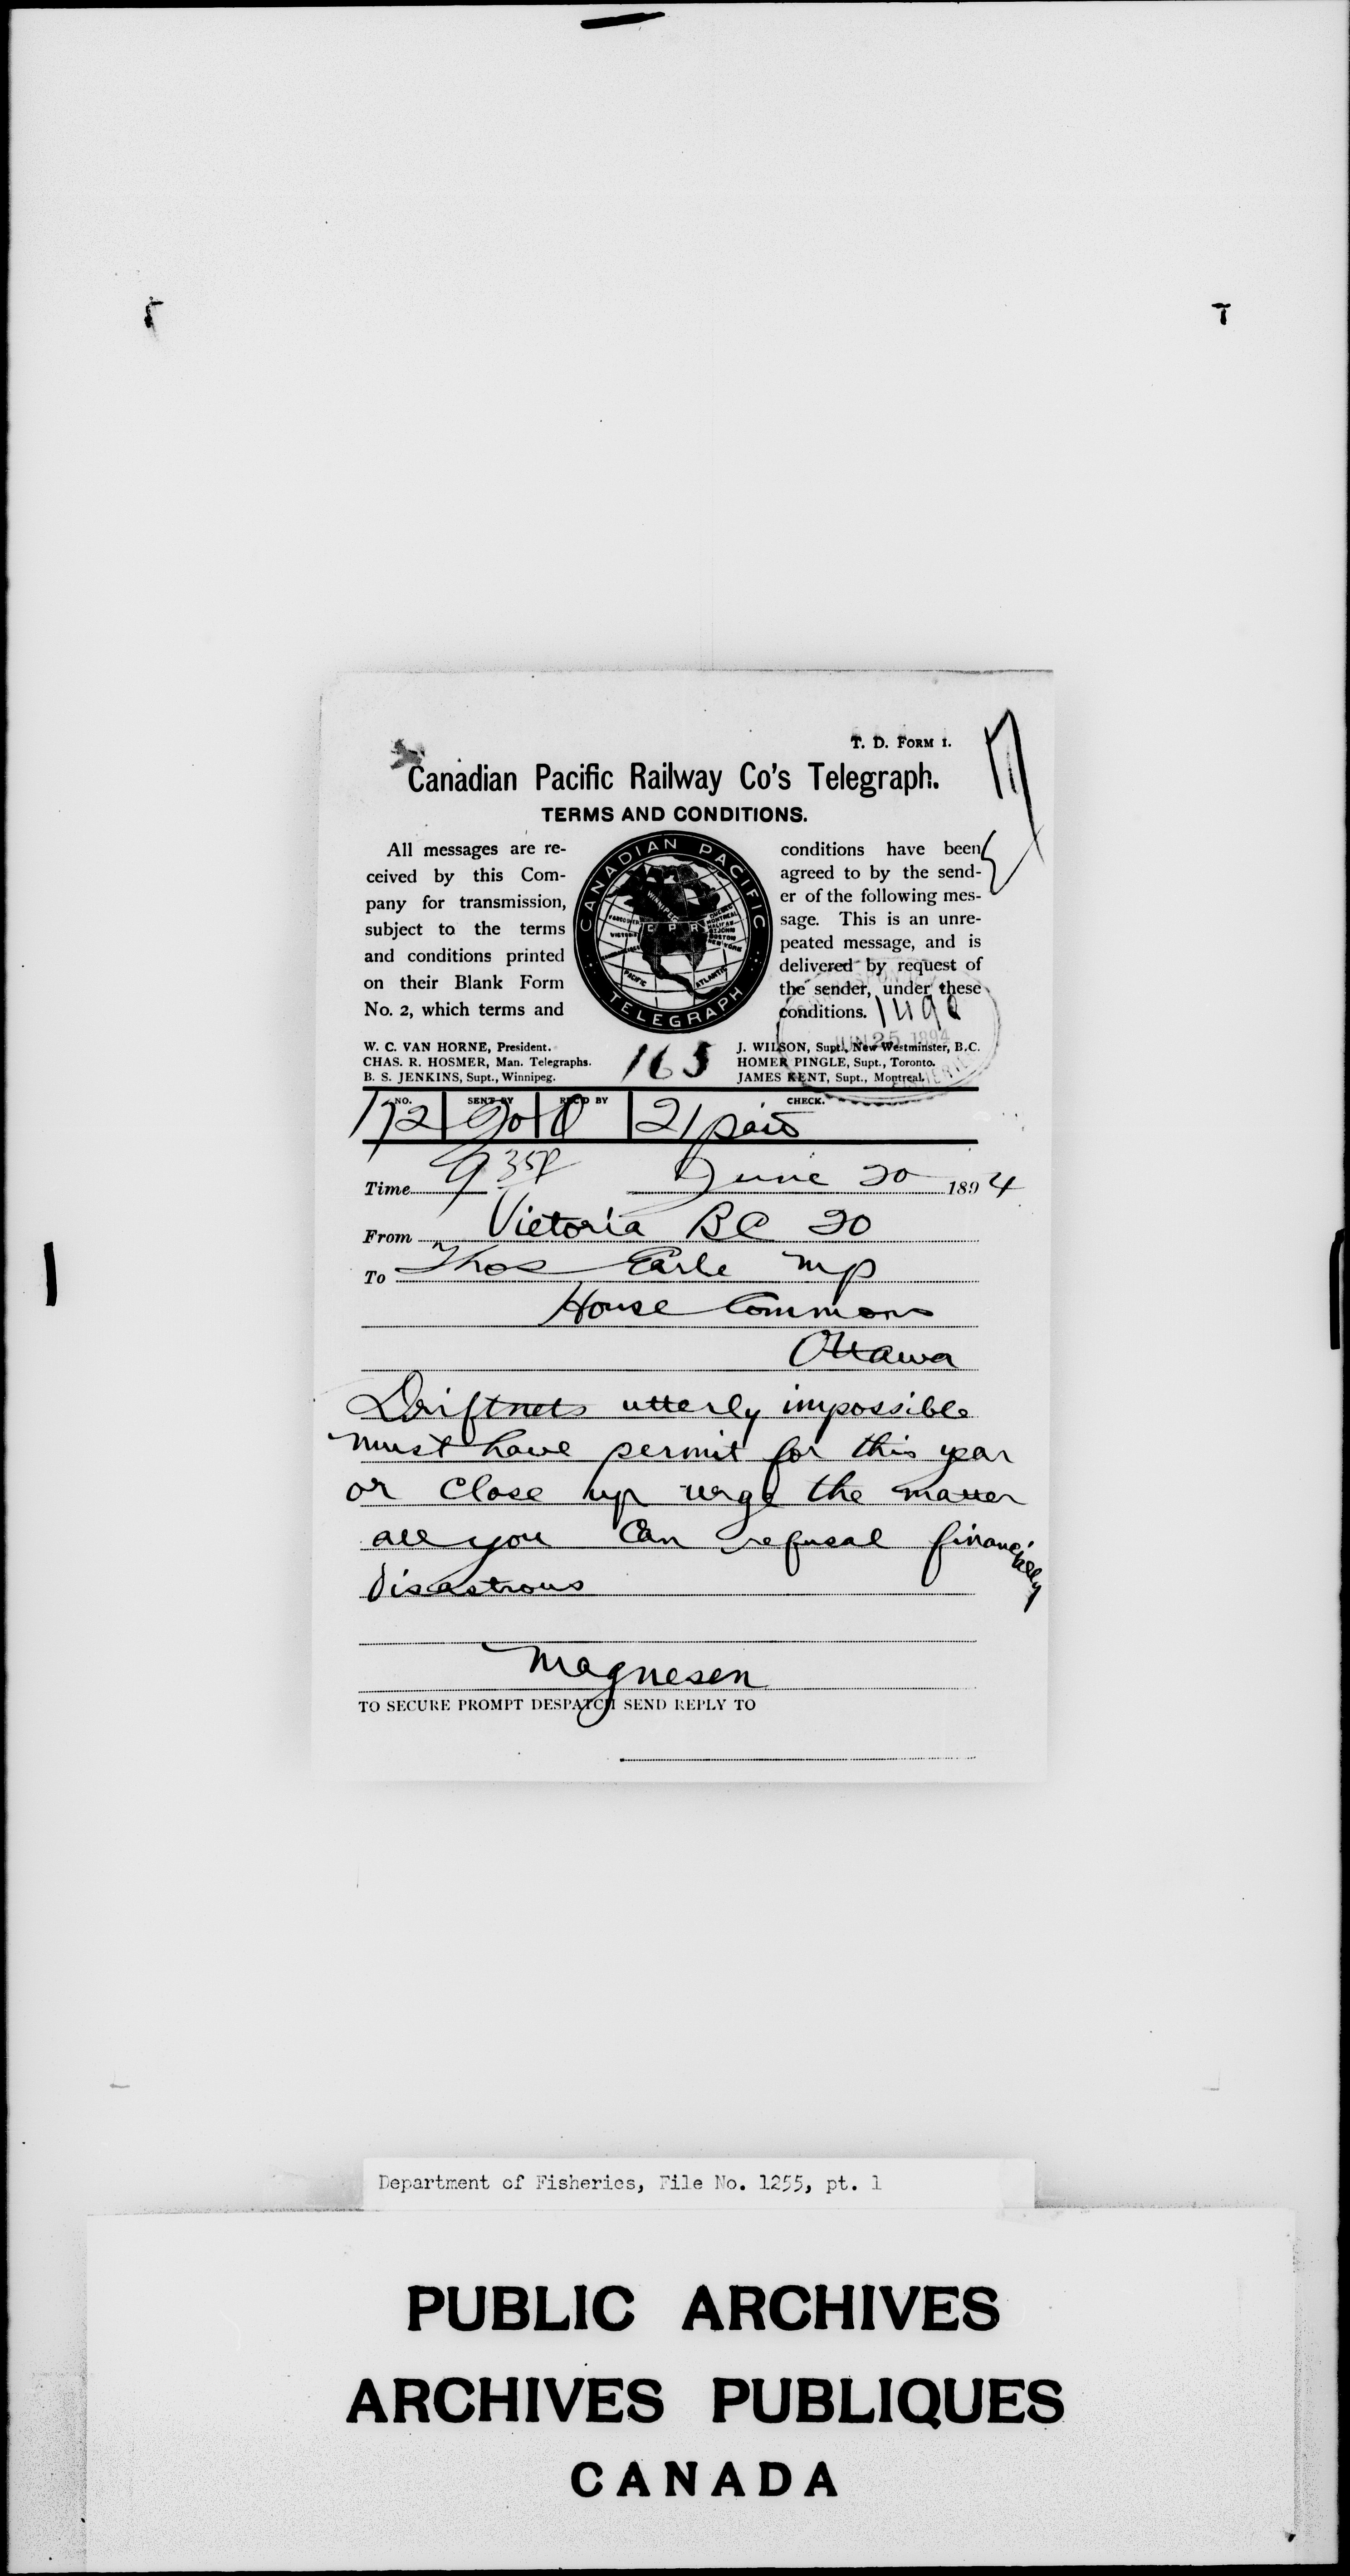 T. D. FORM 1.
Canadian Pacific Railway Co's Telegraph.
TERMS AND CONDITIONS.
All messages are re-
ceived by this Com-
pany for transmission,
subject to the terms
and conditions printed
on their Blank Form
No. 2, which terms and
CANADIAN PACIFIC
TELEGRAPH
WINNIPEG
C P R
PACIFIC
ATLANTIC
conditions have been
agreed to by the send-
er of the following mes-
sage. This is an unre-
peated message, and is
delivered by request of
the sender, under these
conditions.
JUN 25 1894
W. C. VAN HORNE, President.
CHAS. R. HOSMER, Man. Telegraphs.
B. S. JENKINS, Supt., Winnipeg.
165
J. WILSON, Supt., New Westminster, B.C.
HOMER PINGLE, Supt., Toronto.
JAMES KENT, Supt., Montreal.
NO. SENT BY REC'D BY CHECK.
172 21 paid
Time 9 35P June 20 1894
From Victoria BC 20
To Thos Earle MP
House Commons
Ottawa
Driftnets utterly impossible
must have permit for this year
or close up urge the matter
all you can refusal financially
disastrous
Magnesen
TO SECURE PROMPT DESPATCH SEND REPLY TO
Department of Fisheries, File No. 1255, pt. 1
PUBLIC ARCHIVES
ARCHIVES PUBLIQUES
CANADA